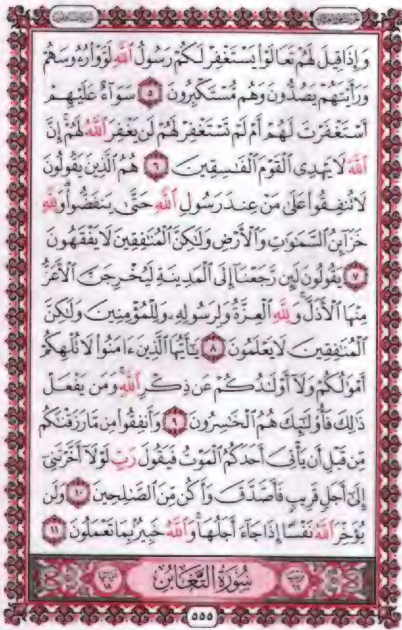 وَإِذَا قِيلَ لَهُمْ تَعَالَوْا۟ يَسْتَغْفِرْ لَكُمْ رَسُولُ ٱللَّهِ لَوَّوْا۟ رُءُوسَهُمْ
وَرَأَيْتَهُمْ يَصُدُّونَ وَهُم مُّسْتَكْبِرُونَ ٥ سَوَآءٌ عَلَيْهِمْ
أَسْتَغْفَرْتَ لَهُمْ أَمْ لَمْ تَسْتَغْفِرْ لَهُمْ لَن يَغْفِرَ ٱللَّهُ لَهُمْ إِنَّ
ٱللَّهَ لَا يَهْدِى ٱلْقَوْمَ ٱلْفَـٰسِقِينَ ٦ هُمُ ٱلَّذِينَ يَقُولُونَ
لَا تُنفِقُوا۟ عَلَىٰ مَنْ عِندَ رَسُولِ ٱللَّهِ حَتَّىٰ يَنفَضُّوا۟ وَلِلَّهِ
خَزَآئِنُ ٱلسَّمَـٰوَٰتِ وَٱلْأَرْضِ وَلَـٰكِنَّ ٱلْمُنَـٰفِقِينَ لَا يَفْقَهُونَ
٧ يَقُولُونَ لَئِن رَّجَعْنَآ إِلَى ٱلْمَدِينَةِ لَيُخْرِجَنَّ ٱلْأَعَزُّ
مِنْهَا ٱلْأَذَلَّ وَلِلَّهِ ٱلْعِزَّةُ وَلِرَسُولِهِۦ وَلِلْمُؤْمِنِينَ وَلَـٰكِنَّ
ٱلْمُنَـٰفِقِينَ لَا يَعْلَمُونَ ٨ يَـٰٓأَيُّهَا ٱلَّذِينَ ءَامَنُوا۟ لَا تُلْهِكُمْ
أَمْوَٰلُكُمْ وَلَآ أَوْلَـٰدُكُمْ عَن ذِكْرِ ٱللَّهِ وَمَن يَفْعَلْ
ذَٰلِكَ فَأُو۟لَـٰٓئِكَ هُمُ ٱلْخَـٰسِرُونَ ٩ وَأَنفِقُوا۟ مِن مَّا رَزَقْنَـٰكُم
مِّن قَبْلِ أَن يَأْتِىَ أَحَدَكُمُ ٱلْمَوْتُ فَيَقُولَ رَبِّ لَوْلَآ أَخَّرْتَنِىٓ
إِلَىٰٓ أَجَلٍ قَرِيبٍ فَأَصَّدَّقَ وَأَكُن مِّنَ ٱلصَّـٰلِحِينَ ١٠ وَلَن
يُؤَخِّرَ ٱللَّهُ نَفْسًا إِذَا جَآءَ أَجَلُهَا وَٱللَّهُ خَبِيرٌۢ بِمَا تَعْمَلُونَ ١١
سُورَةُ التَّغَابُنِ
٥٥٥